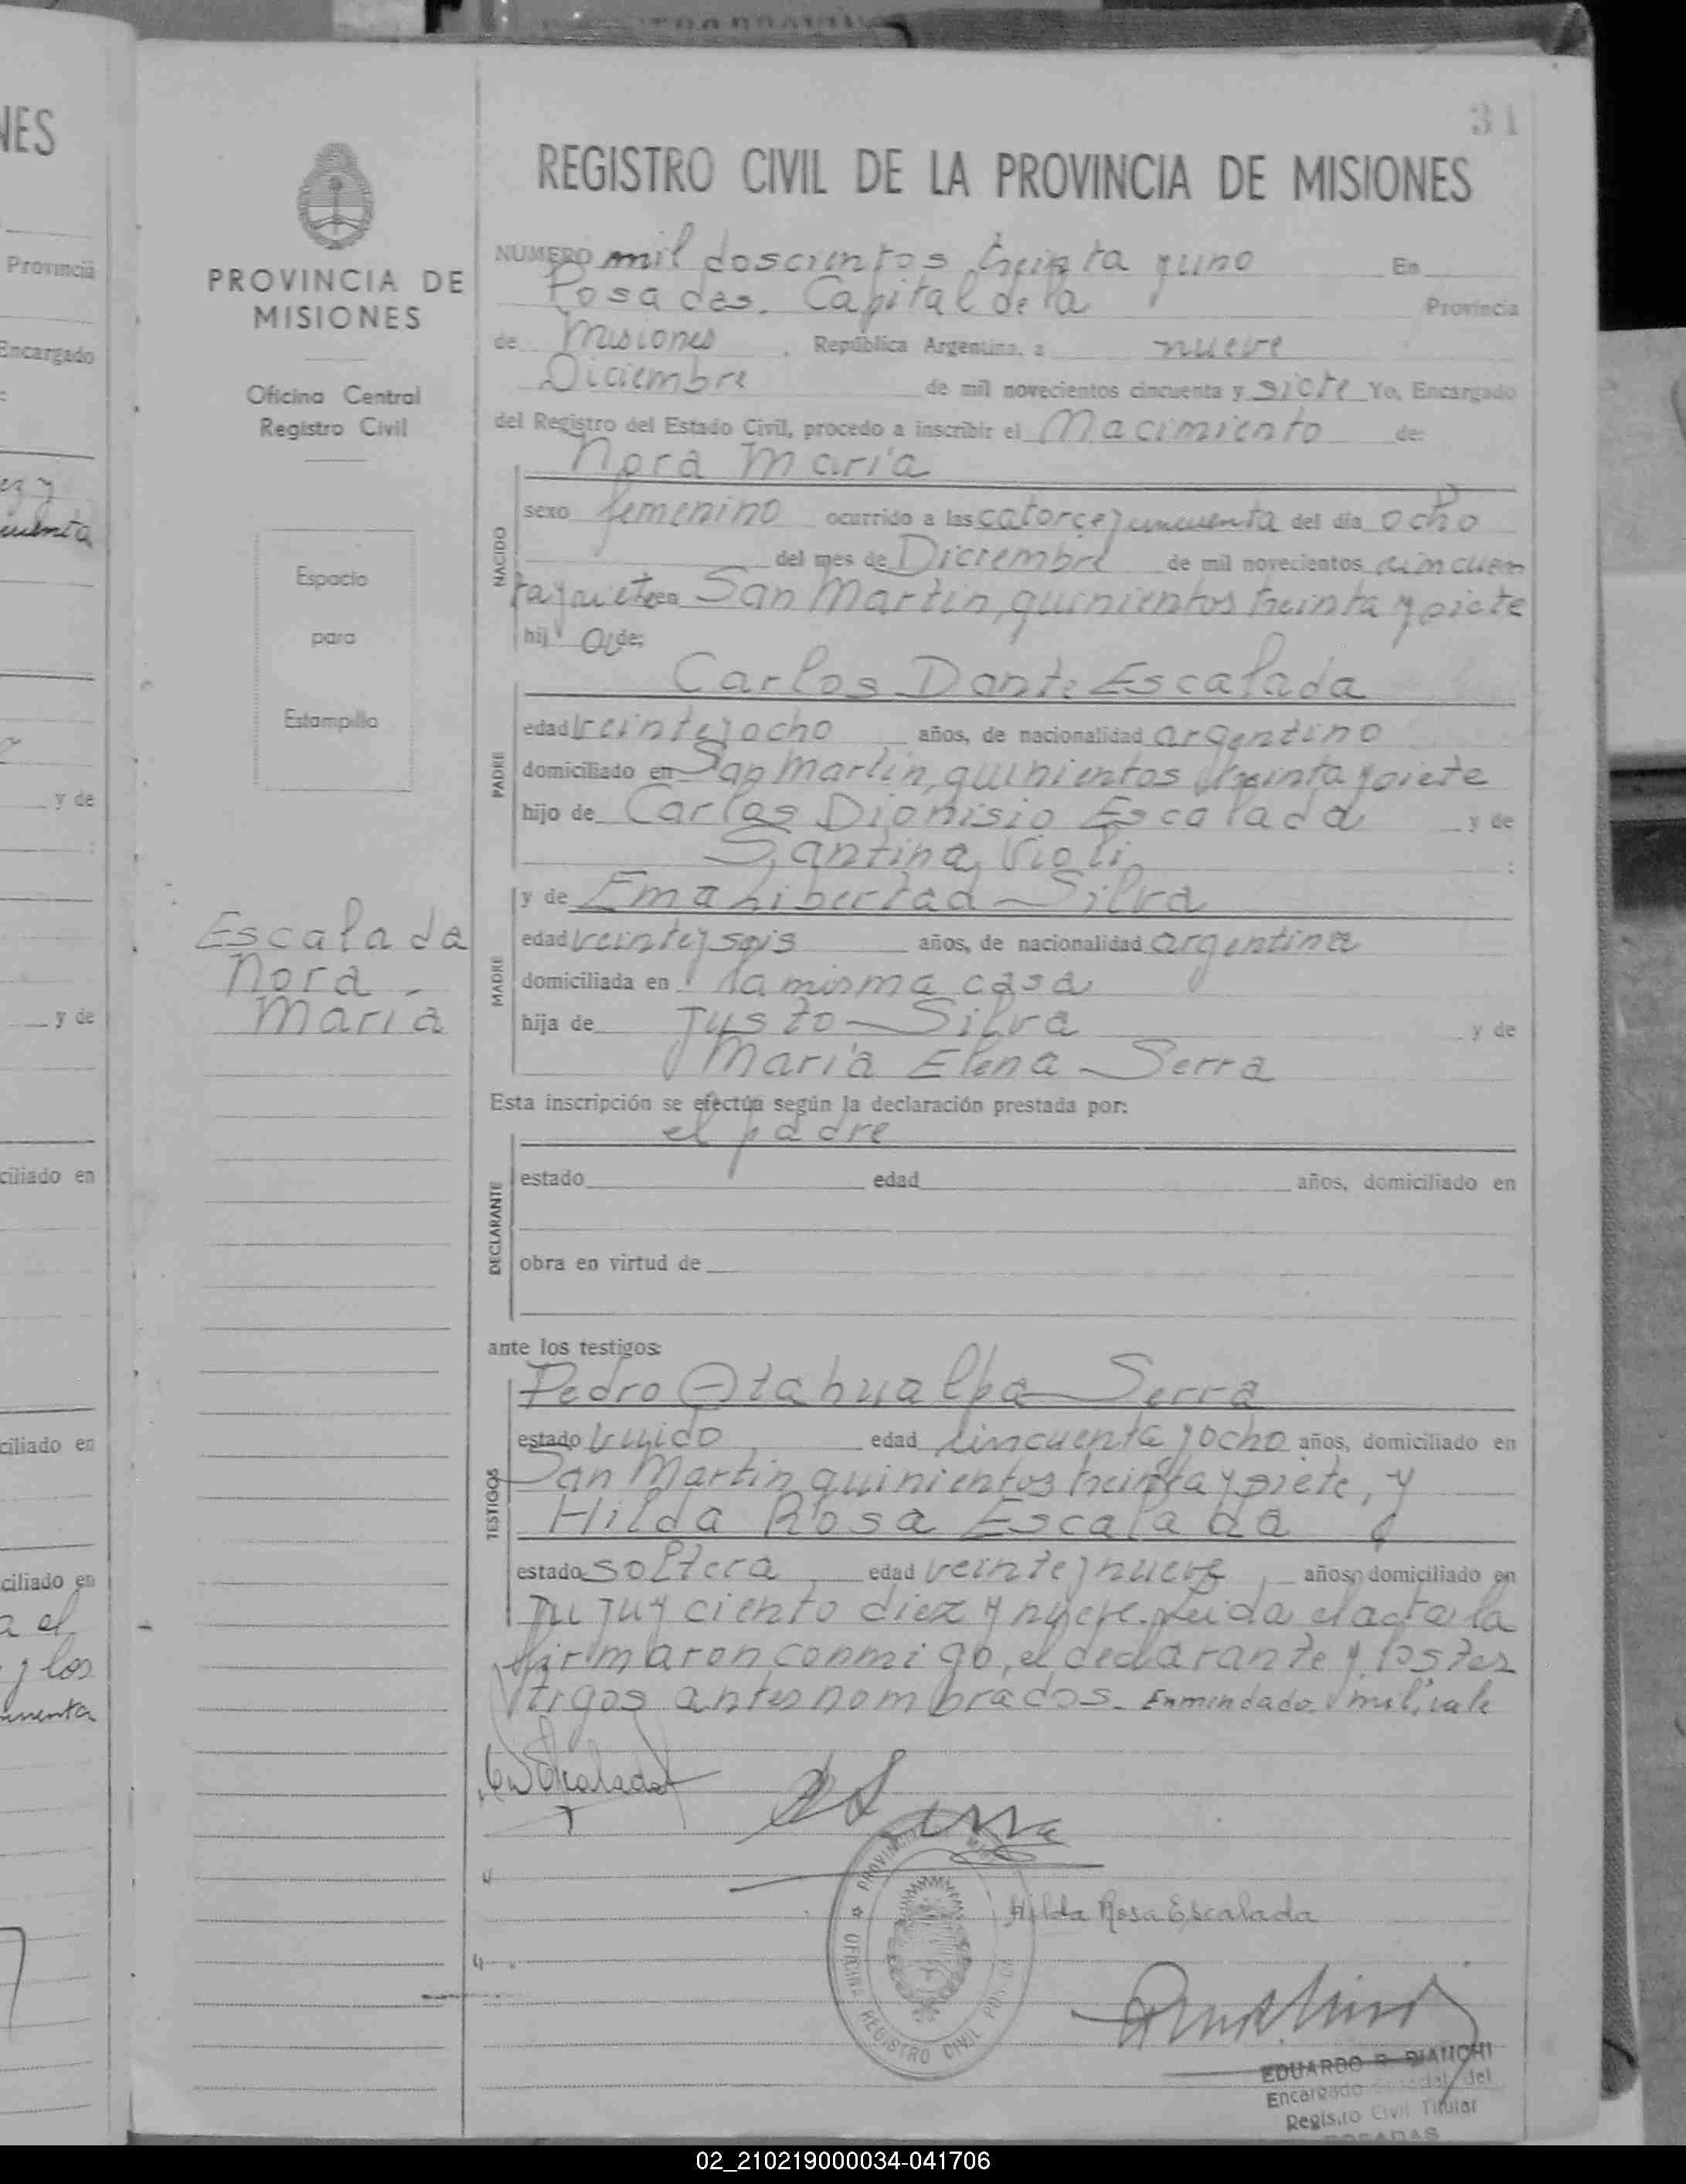 31
REGISTRO CIVIL DE LA PROVINCIA DE MISIONES
PROVINCIA DE
MISIONES
Oficina Central
Registro Civil
Espacio
para
Estampilla
Escalada
Nora
Maria
NUMERO mil doscientos treinta y uno En
Posadas, Capital de la Provincia
de Misiones, República Argentina, a nueve
Diciembre de mil novecientos cincuenta y siete Yo, Encargado
del Registro del Estado Civil, procedo a inscribir el Nacimiento de:
Nora María
NACIDO
sexo femenino ocurrido a las catorce y cincuenta del día ocho
del mes de Diciembre de mil novecientos cincuen
ta y siete en San Martin, quinientos treinta y siete
hij a de:
Carlos Dante Escalada
PADRE
edad veinte y ocho años, de nacionalidad argentino
domiciliado en San Martin, quinientos treinta y siete
hijo de Carlos Dionisio Escalada y de
Santina Violi
MADRE
y de Ema Libertad Silva
edad veinte y seis años, de nacionalidad argentina
domiciliada en la misma casa
hija de Justo Silva y de
María Elena Serra
Esta inscripción se efectúa según la declaración prestada por:
el padre
DECLARANTE
estado edad años, domiciliado en
obra en virtud de
ante los testigos:
TESTIGOS
Pedro Atahualpa Serra
estado viudo edad cincuenta y ocho años, domiciliado en
San Martin quinientos treinta y siete, y
Hilda Rosa Escalada
estado soltera edad veinte y nueve años, domiciliado en
Jujuy ciento diez y nueve. Leida el acta la
firmaron conmigo, el declarante y los tes
tigos antes nombrados. Enmendado "mil", vale
Escalada
Serra
Hilda Rosa Escalada
PROVINCIA
OFICINA REGISTRO CIVIL
EDUARDO R. BIANCHI
Encargado del
Registro Civil Titular
POSADAS
NES
Provincia
Encargado
ez y
cuenta
y de
y de
ciliado en
ciliado en
ciliado en
a el
y los
02_210219000034-041706